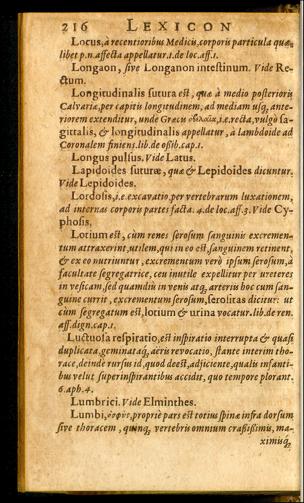 216 LEXICON
Locus, à recentioribus Medicis, corporis particula quæ-
libet p.n. affecta appellatur. 1. de loc. aff. 1.
Longaon, sive Longanon intestinum. Vide Re-
ctum.
Longitudinalis sutura est, quæ à medio posterioris
Calvariæ, per capitis longitudinem, ad mediam usq, ante-
riorem extenditur, unde Græcis i.e. recta, vulgò sa-
gittalis, & longitudinalis appellatur, à lambdoide ad
Coronalem finiens. lib. de ossib. cap. 1.
Longus pulsus. Vide Latus.
Lapidoides suturæ, quæ & Lepidoides dicuntur.
Vide Lepidoides.
Lordosis, i.e. excavatio, per vertebrarum luxationem,
ad internas corporis partes facta. 4. de loc. aff. 3. Vide Cy-
phosis.
Lotium est, cùm renes serosum sanguinis excremen-
tum attraxerint, utilem, qui in eo est, sanguinem retinent,
& ex eo nutriuntur, excrementum verò ipsum serosum, à
facultate segregatrice, ceu inutile expellitur per ureteres
in vesicam, sed quamdiù in venis atq, arteriis hoc cum san-
guine currit, excrementum serosum, serositas dicitur: ut
cùm segregatum est, lotium & urina vocatur. lib. de ren.
aff. dign. cap. 1.
Luctuosa respiratio, est inspiratio interrupta & quasi
duplicata, geminataq, aëris revocatio, stante interim tho-
race, deinde rursus id, quod deest, adjiciente, qualis infanti-
bus velut superinspirantibus accidit, quo tempore plorant.
6. aph. 4.
Lumbrici. Vide Elminthes.
Lumbi, ὀσφὺς, propriè pars est totius spinæ infra dorsum
sive thoracem, quinq, vertebris omnium crassissimis, ma-
ximisq,